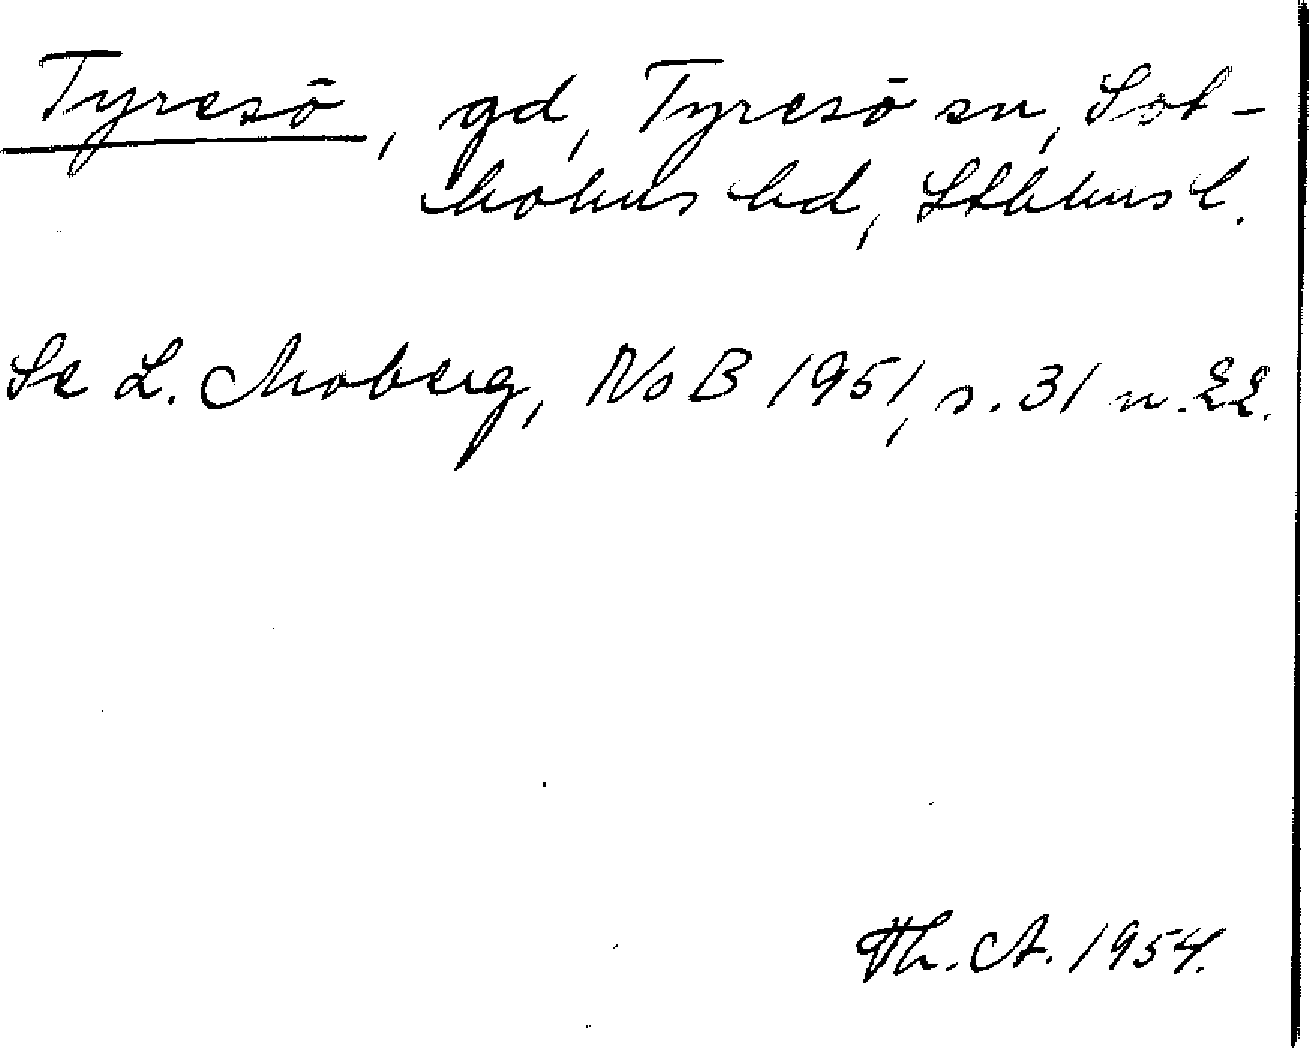 Tyresö, gd, Tyresö sn, Sot-
holms hd, Sthlms l.
Se L. Moberg, NoB 1951, s. 31 n. 22.
Th. A. 1954.